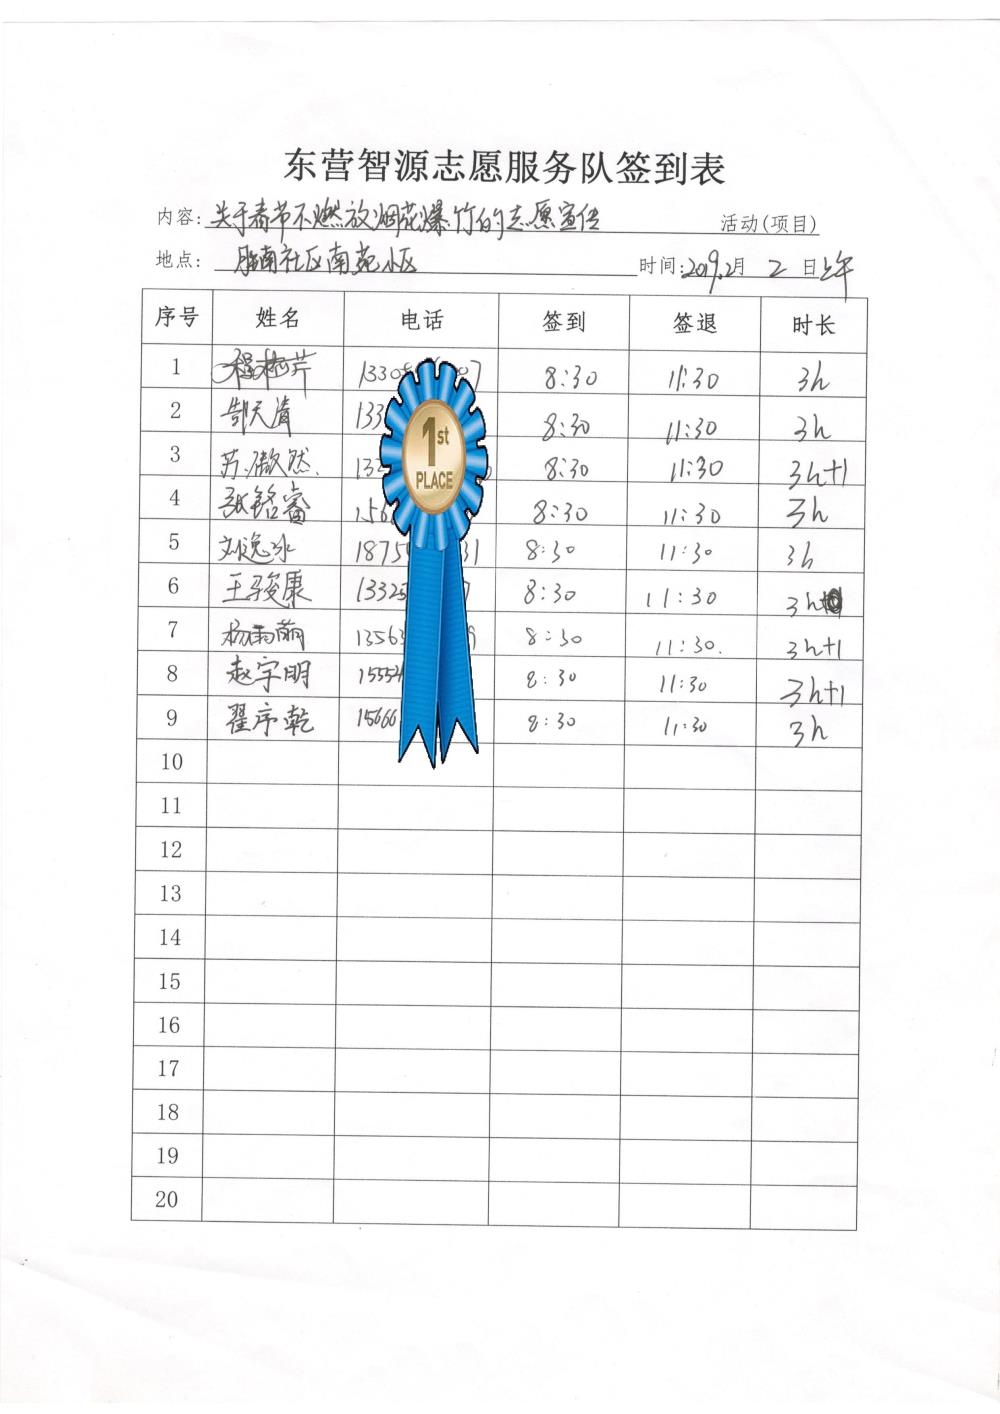 东营智源志愿服务队签到表
内容: 关于春节不燃放烟花爆竹的志愿宣传 活动(项目)
地点: 胜南社区南苑小区 时间: 2019.2月 2 日上午
序号 姓名 电话 签到 签退 时长
1 8:30 11:30 3h
2 天清 133 8:30 11:30 3h
3 苏傲然. 8:30 11:30 3h+1
4 张铭睿 156 8:30 11:30 3h
5 刘逸冰 1875 31 8:30 11:30 3h
6 王骏康 1332 7 8:30 11:30 3h
7 杨雨萌 13563 9 8:30 11:30. 3h+1
8 赵宇明 1555 8:30 11:30 3h+1
9 翟序乾 15666 8:30 11:30 3h
10
11
12
13
14
15
16
17
18
19
20
1st
PLACE